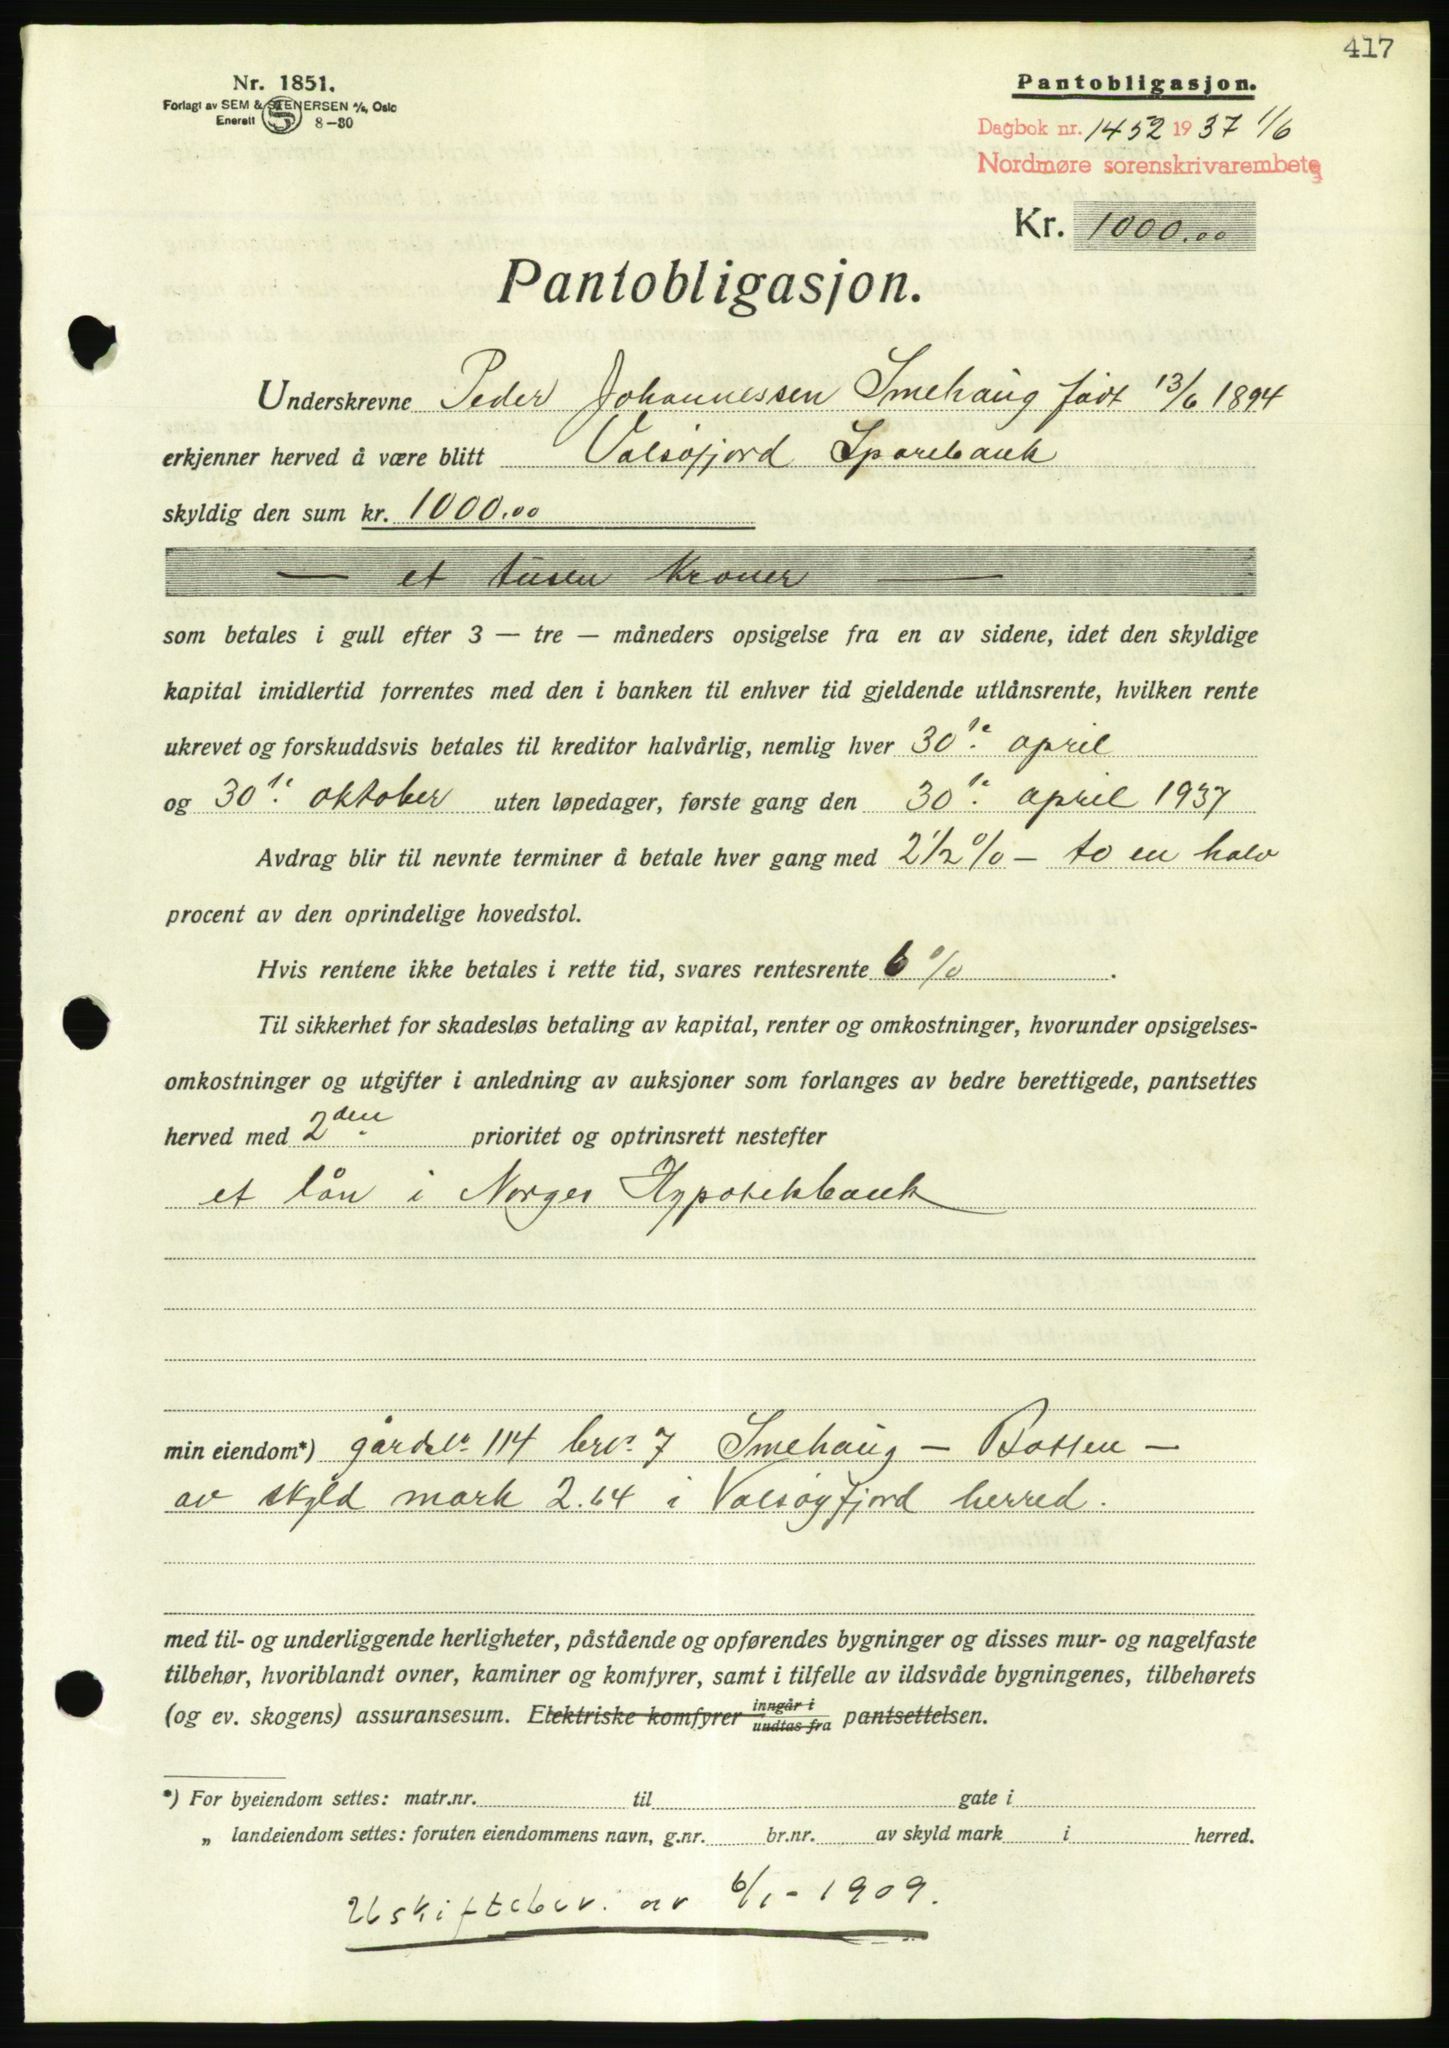 417
Nr. 1851.
Forlagt av SEM & STENERSEN A/S, Oslo
Enerett S 8-30
Pantobligasjon.
Dagbok nr. 1452 1937 1/6
Nordmøre sorenskrivarembete
Kr. 1000.00
Pantobligasjon.
Underskrevne Peder Johannessen Smehaug født 13/6 1894
erkjenner herved å være blitt Valsøfjord Sparebank
skyldig den sum kr. 1000.00
— et tusen kroner —
som betales i gull efter 3 — tre — måneders opsigelse fra en av sidene, idet den skyldige
kapital imidlertid forrentes med den i banken til enhver tid gjeldende utlånsrente, hvilken rente
ukrevet og forskuddsvis betales til kreditor halvårlig, nemlig hver 30te april
og 30te oktober uten løpedager, første gang den 30te april 1937
Avdrag blir til nevnte terminer å betale hver gang med 2 1/2 % — to en halv
procent av den oprindelige hovedstol.
Hvis rentene ikke betales i rette tid, svares rentesrente 6 %.
Til sikkerhet for skadesløs betaling av kapital, renter og omkostninger, hvorunder opsigelses-
omkostninger og utgifter i anledning av auksjoner som forlanges av bedre berettigede, pantsettes
herved med 2den prioritet og optrinsrett nestefter
et lån i Norges Hypotekbank
min eiendom*) gårdsnr. 114 brnr. 7 Smehaug — Botten —
av skyld mark 2.64 i Valsøyfjord herred.
med til- og underliggende herligheter, påstående og opførendes bygninger og disses mur- og nagelfaste
tilbehør, hvoriblandt ovner, kaminer og komfyrer, samt i tilfelle av ildsvåde bygningenes, tilbehørets
(og ev. skogens) assuransesum. Elektriske komfyrer inngår i / undtas fra pantsettelsen.
*) For byeiendom settes: matr.nr. til gate i
„ landeiendom settes: foruten eiendommens navn, g.nr. br.nr. av skyld mark i herred.
Utskifteber. av 6/1 - 1909.